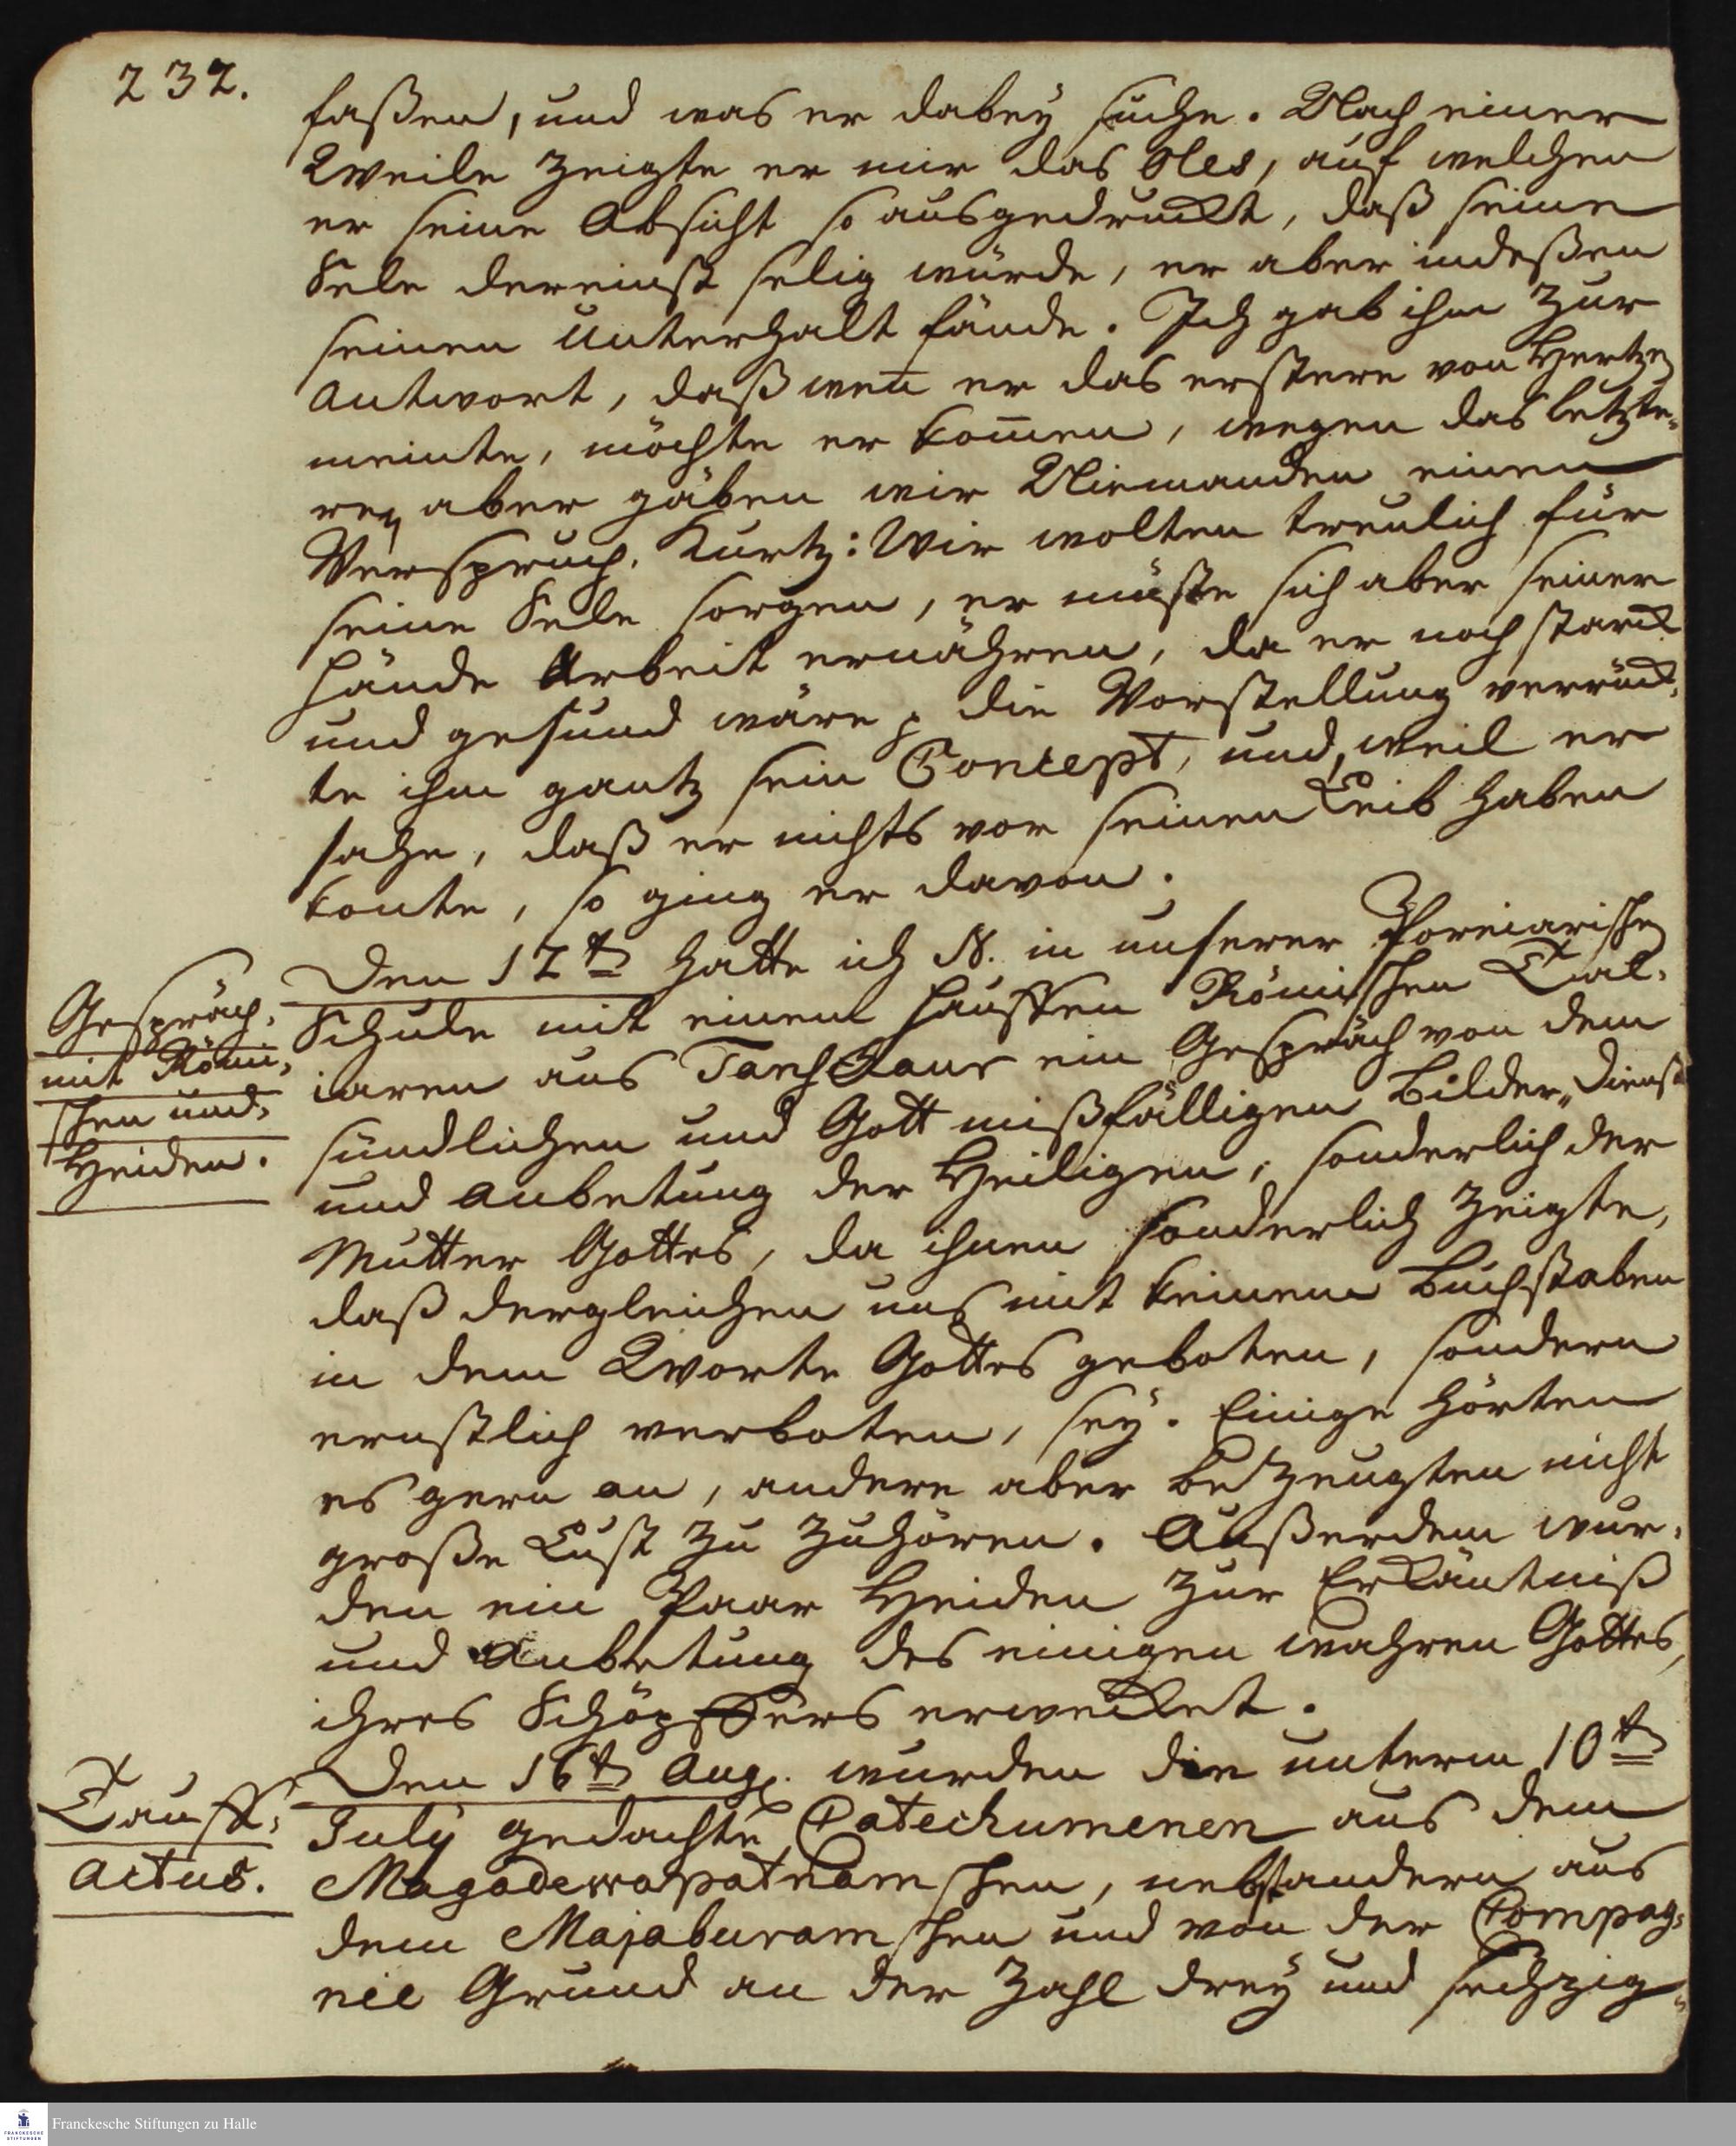 232.
faßen, und was er dabey suche. Nach einer
Weile zeigte er mir das Oles, auf welchen
er seine Absicht so ausgedruckt, daß seine
Sele dereinst selig würde, er aber indeßen
seinen Unterhalt fände. Ich gab ihm zur
Antwort, daß wen̅ er das erstere von Hertzen
meinte, möchte er kom̅en, wegen das letzte-
ren aber gäben wir Niemanden einen
Verspruch. Kurtz: Wir wolten treulich für
seine Sele sorgen, er müste sich aber seiner
Hände Arbeit ernähren, da er noch starck
und gesund wäre, die Vorstellung verrück-
te ihm gantz sein Concept, und, weil er
sahe, daß er nichts vor seinen Leib haben
konte, so ging er davon.
Den 12ten hatte ich N. in unserer Poreiarischen
Gespräch-
Schule mit einem Hauffen Römischen
mit Römi-
iaren aus Tanschaur ein Gespräch von dem
schen und-
sündlichen und Gott mißfälligen Bilder-Dienst
Heiden.
und Anbetung der Heiligen, sonderlich der
Mutter Gottes, da ihnen sonderlich zeigte,
daß dergleichen uns mit keinem Buchstaben
in dem Worte Gottes geboten, sondern
ernstlich verboten, sey. Einige hörten
es gern an, andere aber bezeugten nicht
große Lust zu zuhören. Außerdem wur-
den ein Paar Heiden zur Erkäntniß
und Anbetung des einigen wahren Gottes,
ihres Schöpffers erwecket.
Den 16ten Aug. wurden die unterm 10ten
Tauff-
July gedachte Catechumenen aus dem
Actus.
Magadewapatnamschen, nebst andern aus
dem Majaburamschen und von der Compag-
nie Grund an der Zahl drey und sechzig-
Franckesche Stiftungen zu Halle
FRANCKESCHE
STIFTUNGEN